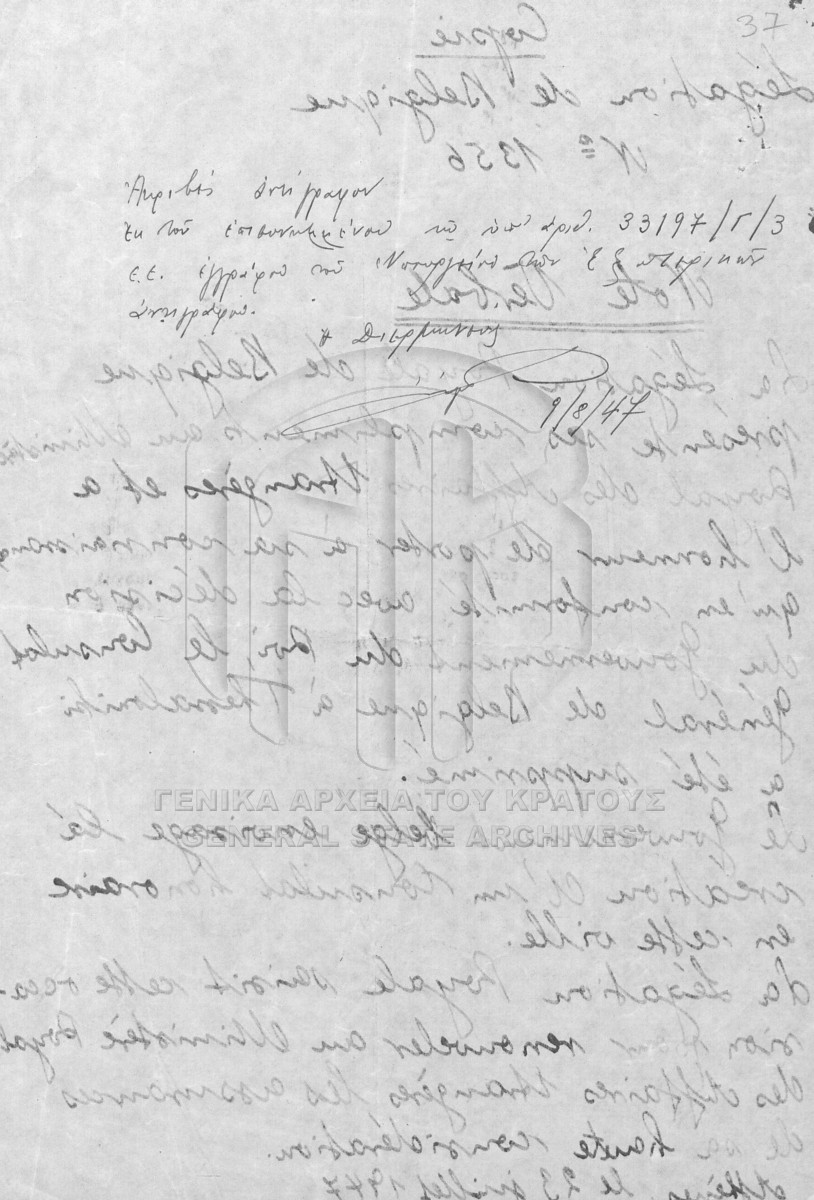 37
Copie
Légation de Belgique
Nº 1356
Ἀκριβές ἀντίγραφον
ἐκ τοῦ ἐπισυνημμένου τῷ ὑπ' ἀριθ. 33197/Γ/3
ἐ.ἔ. ἐγγράφου τοῦ Ὑπουργείου τῶν Ἐξωτερικῶν
ἀντιγράφου.
Note Verbale
Η Διερμηνεύς
9/8/47
La Légation de Belgique
présente ses compliments au Ministère
Royal des Affaires Etrangères et a
l'honneur de porter à sa connaissance
qu'en conformité avec la décision
du Gouvernement du Roi, le Consulat
Général de Belgique à Thessaloniki
a été supprimé.
ΓΕΝΙΚΑ ΑΡΧΕΙΑ ΤΟΥ ΚΡΑΤΟΥΣ
GENERAL STATE ARCHIVES
Le Gouvernement belge envisage la
création d'un Consulat honoraire
en cette ville.
La Légation Royale saisit cette occa-
sion pour renouveler au Ministère Royal
des Affaires Etrangères les assurances
de sa haute considération.
Athènes, le 23 juillet 1947